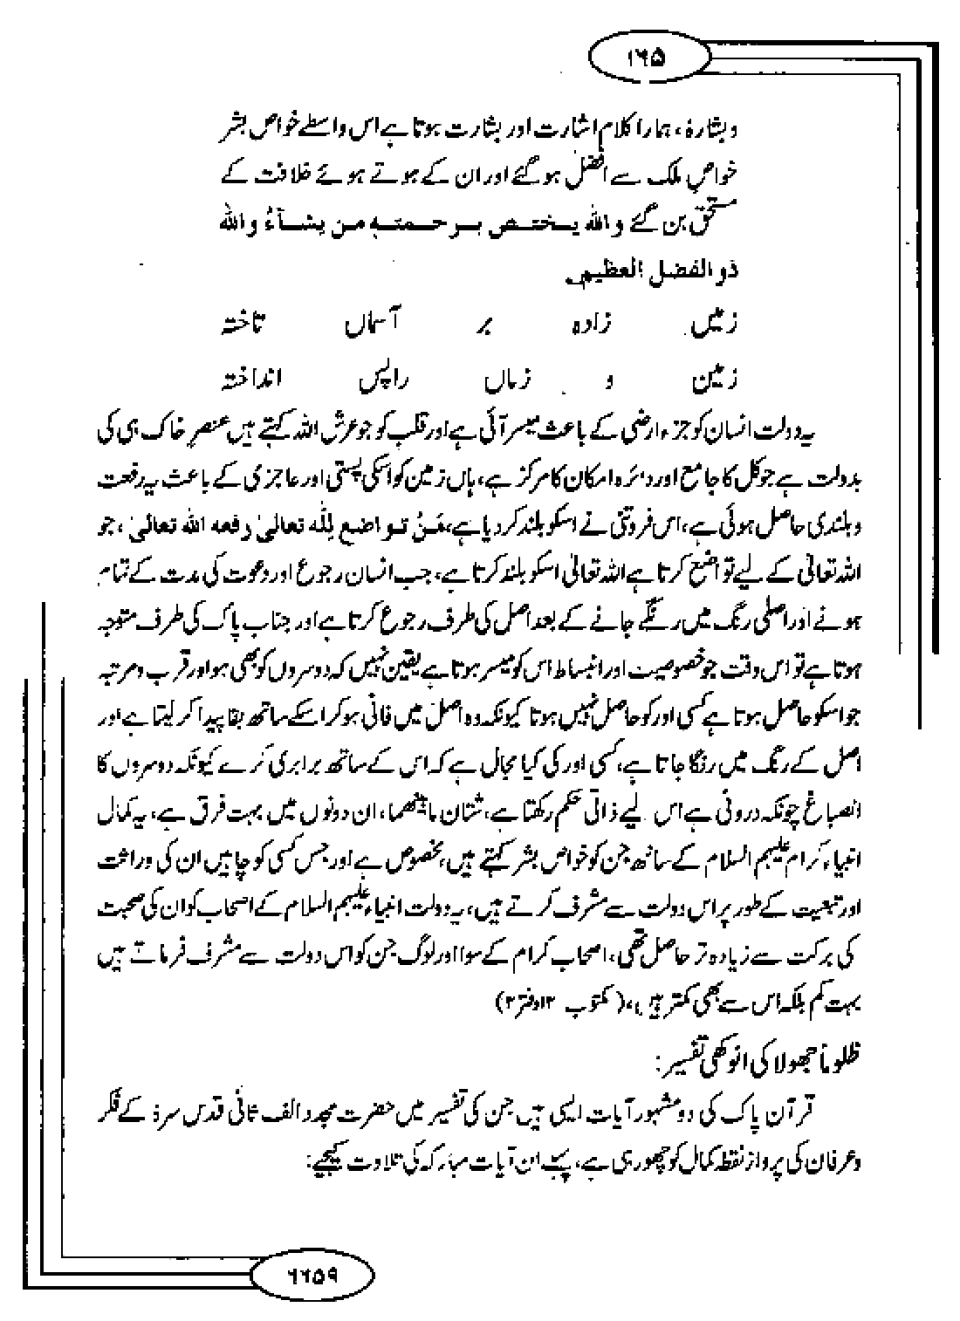 ۱۶۵
و بشارۃ، ہمارا کلام اشارت اور بشارت ہوتا ہے اس واسطے خواص بشر
خواصِ ملک سے افضل ہو گئے اور ان کے ہوتے ہوئے خلافت کے
مستحق بن گئے واللہ یختص برحمتہ من یشآءُ واللہ
ذو الفضل العظیم۔
زمیں زادہ بر آسماں تاختہ
زمین و زماں راپس انداختہ
یہ دولت انسان کو جزء ارضی کے باعث میسر آئی ہے اور قلب کو جو عرش اللہ کہتے ہیں عنصرِ خاک ہی کی
بدولت ہے جو کل کا جامع اور دائرہ امکان کا مرکز ہے، ہاں زمین کو اسکی پستی اور عاجزی کے باعث یہ رفعت
و بلندی حاصل ہوئی ہے، اس فروتنی نے اسکو بلند کر دیا ہے، مَنْ تواضع لِلّٰہ تعالیٰ رفعہ اللہ تعالیٰ، جو
اللہ تعالیٰ کے لیے تواضع کرتا ہے اللہ تعالیٰ اسکو بلند کرتا ہے، جب انسان رجوع اور دعوت کی مدت کے تمام
ہونے اور اصلی رنگ میں رنگے جانے کے بعد اصل کی طرف رجوع کرتا ہے اور جناب پاک کی طرف متوجہ
ہوتا ہے تو اس وقت جو خصوصیت اور انبساط اس کو میسر ہوتا ہے یقین نہیں کہ دوسروں کو بھی ہو اور قرب و مرتبہ
جو اسکو حاصل ہوتا ہے کسی اور کو حاصل نہیں ہوتا کیونکہ وہ اصل میں فانی ہو کر اسکے ساتھ بقا پیدا کر لیتا ہے اور
اصل کے رنگ میں رنگا جاتا ہے، کسی اور کی کیا مجال ہے کہ اس کے ساتھ برابری کرے کیونکہ دوسروں کا
انصباغ چونکہ درونی ہے اس لیے ذاتی حکم رکھتا ہے، شتان ما بینھما، ان دونوں میں بہت فرق ہے، یہ کمال
انبیاء کرام علیہم السلام کے ساتھ جن کو خواص بشر کہتے ہیں، مخصوص ہے اور جس کسی کو چاہیں ان کی وراثت
اور تبعیت کے طور پر اس دولت سے مشرف کرتے ہیں، یہ دولت انبیاء علیہم السلام کے اصحاب کو ان کی صحبت
کی برکت سے زیادہ تر حاصل تھی، اصحاب کرام کے سوا اور لوگ جن کو اس دولت سے مشرف فرماتے ہیں
بہت کم بلکہ اس سے بھی کمتر ہیں، (مکتوب ۱۲ دفتر ۲)
ظلوماً جھولا کی انوکھی تفسیر:
قرآن پاک کی دو مشہور آیات ایسی ہیں جن کی تفسیر میں حضرت مجدد الف ثانی قدس سرہٗ کے فکر
و عرفان کی پرواز نقطہ کمال کو چھو رہی ہے، پہلے ان آیات مبارکہ کی تلاوت کیجیے: